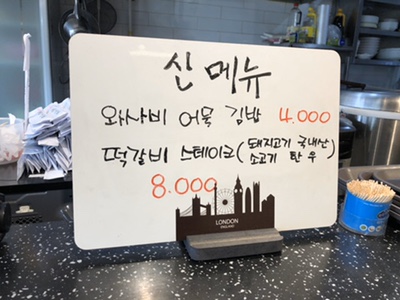 신메뉴
와사비 어묵 김밥 4.000
떡갈비 스테이크(돼지고기 국내산
소고기 한우)
8.000
LONDON
ENGLAND